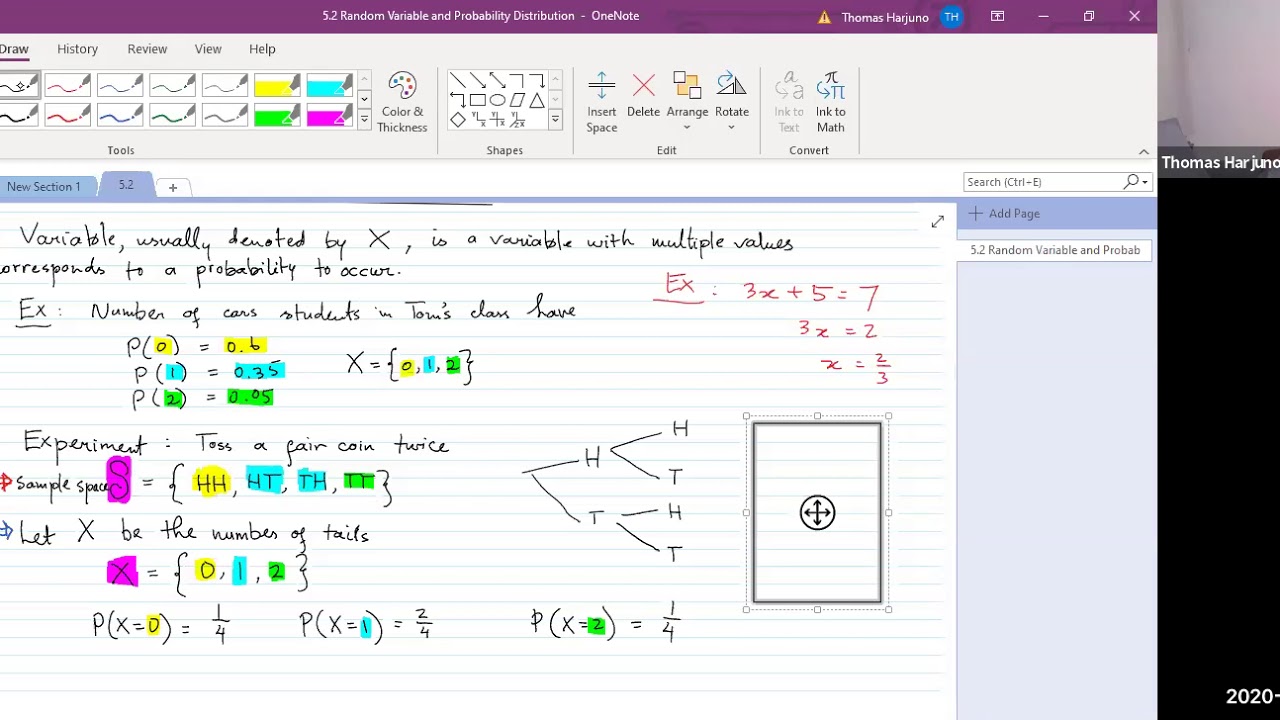 5.2 Random Variable and Probability Distribution - OneNote
Thomas Harjuno TH
Draw History Review View Help
Color & Thickness
Insert Space
Delete
Arrange
Rotate
Ink to Text
Ink to Math
Tools
Shapes
Edit
Convert
Thomas Harjuno
New Section 1
5.2
Search (Ctrl+E)
Add Page
5.2 Random Variable and Probab
Variable, usually denoted by X, is a variable with multiple values
orresponds to a probability to occur.
Ex: Number of cars students in Tom's class have
P(0) = 0.6
P(1) = 0.35
P(2) = 0.05
X = {0, 1, 2}
Ex: 3x + 5 = 7
3x = 2
x = 2/3
Experiment: Toss a fair coin twice
Sample space S = {HH, HT, TH, TT}
H H
T
T H
T
Let X be the number of tails
X = {0, 1, 2}
P(X=0) = 1/4 P(X=1) = 2/4 P(X=2) = 1/4
2020-